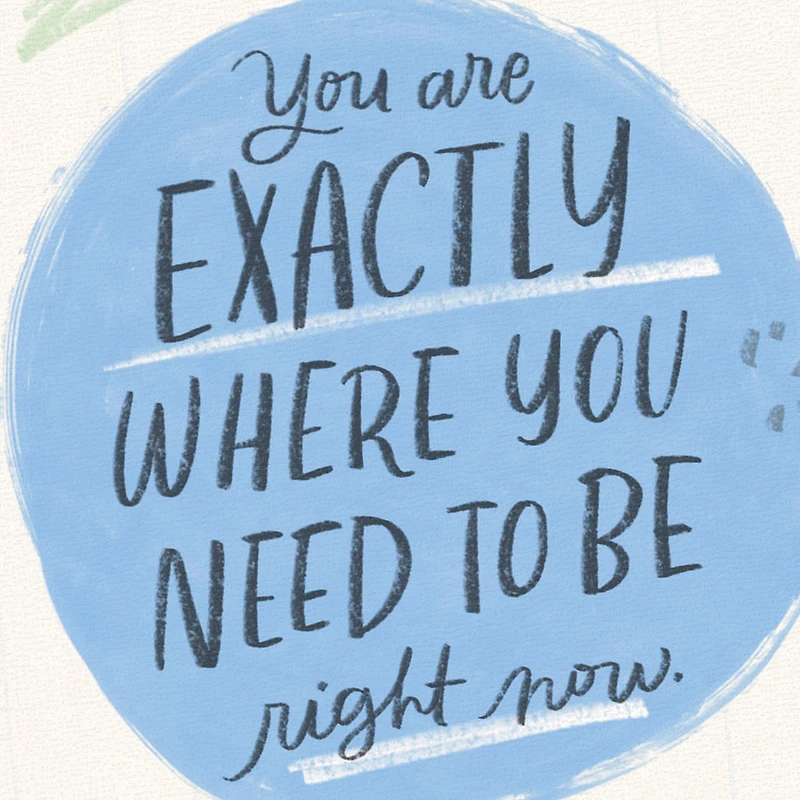 You are
EXACTLY
WHERE YOU
NEED TO BE
right now.